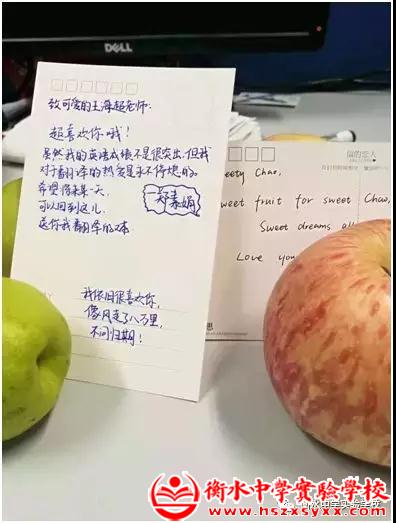 DELL
致可爱的王海超老师:
超喜欢你哦!
虽然我的英语成绩不是很突出,但我
对于翻译的热爱是永不停熄的。
希望将来某一天,
可以回到这儿,
送你我翻译的书
郑素娟
我依旧很喜欢你,
像风走了八万里,
不问归期!
偏的恋人
Chao,
weet fruit for sweet Chao,
Sweet dreams
Love you
衡水中学实验学校
www.hszxsyxx.com